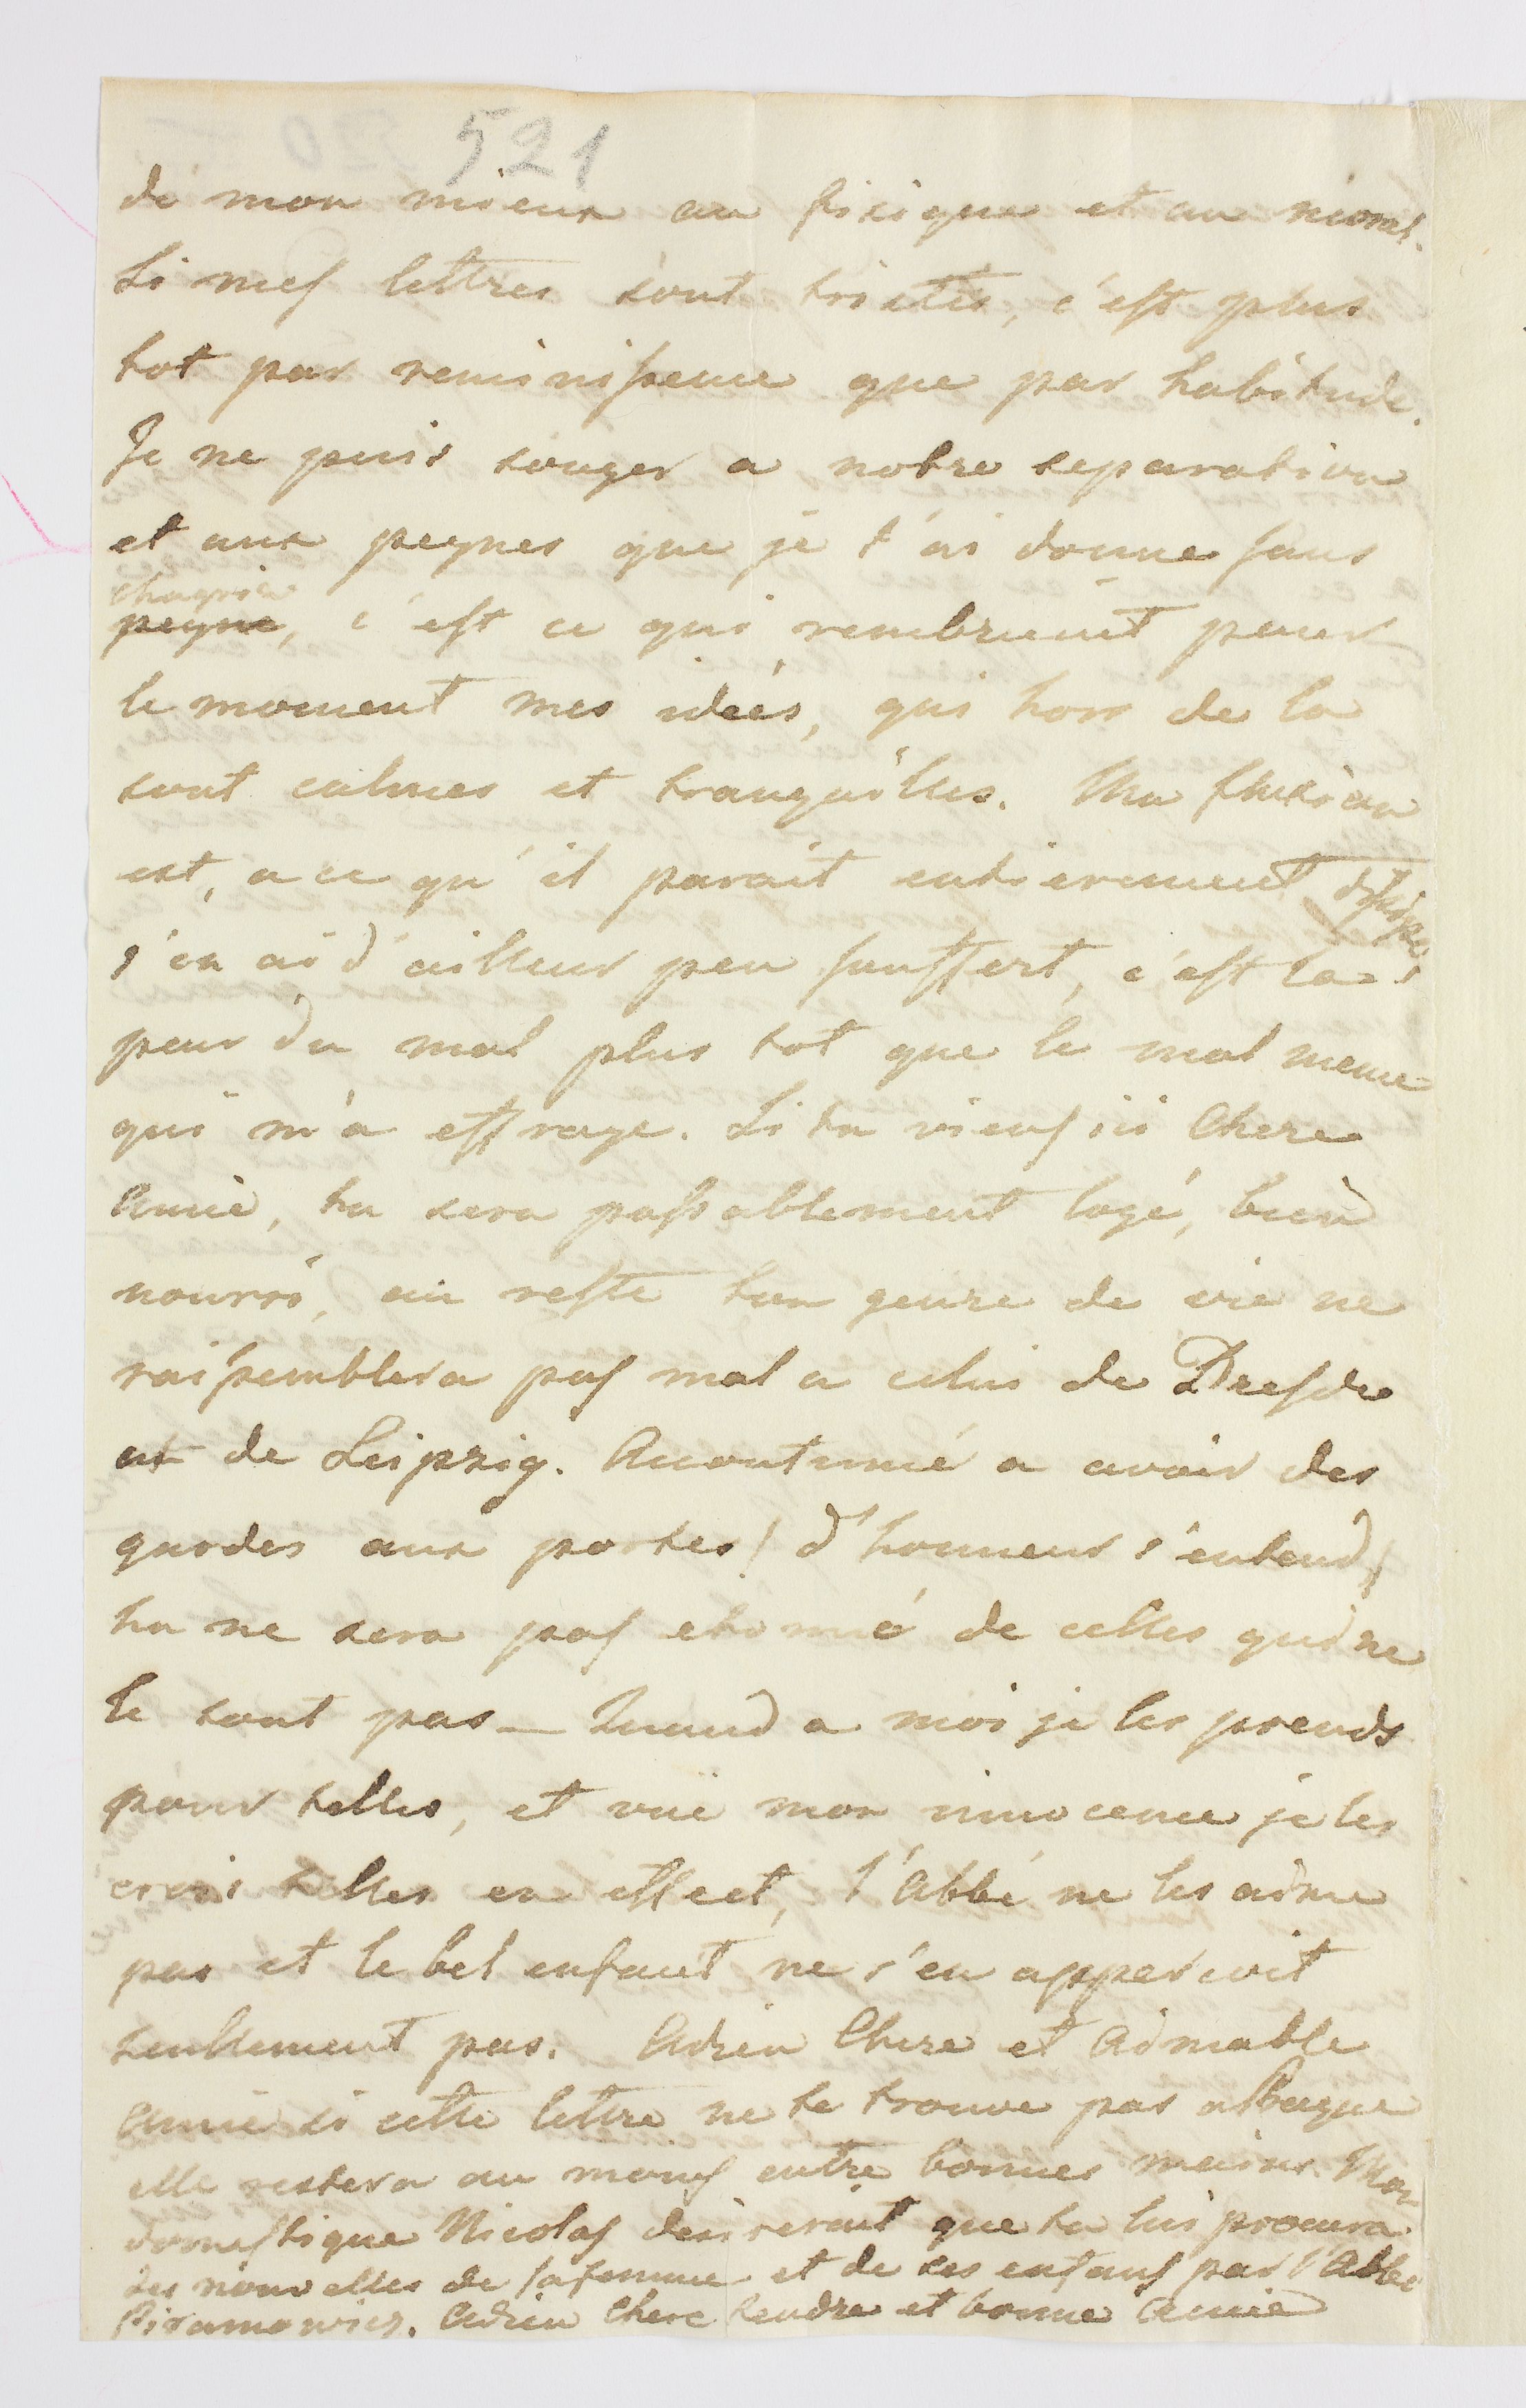 521
de mon mieux au fisique et au moral.
Si mes lettres sont tristes, c'est plus
tot par reminissence que par habitude.
Je ne puis songer a notre separation
et aux peynes que je t'ai donne sans
chagrin
peyne, c'est ce qui rembrunit pour
le moment mes idées, qui hors de la
sont calmes et tranquilles. Ma fluxion
est, a ce qu'il parait entierement dissipé
j'en ai d'ailleur peu souffert, c'est la
peur du mal plus tot que le mal meme
qui m'a effraye. Si tu viens ici Chere
Amie, tu sera passablement logé, bien
nourri, au reste ton genre de vie ne
raissemblera pas mal a celui de Dresde
et de Leipzig. Accoutumé a avoir des
gardes aux portes / d'honneur s'entend /
tu ne sera pas etonné de celles qui ne
le sont pas — Quand a moi je les prends
pour telles, et vüe mon innocence je les
crois telles en effect, l'Abbé ne les aime
pas et le bel enfant ne s'en appercoit
seullement pas. Adieu Chere et Aimable
Amie si cette lettre ne te trouve pas a Prague
elle restera au moins entre bonnes mains. Mon
domestique Nicolas desirerait que tu lui procura
des nouvelles de sa femme et de ses enfans par l'Abbé
Piramowicz. Adieu Chere tendre et bonne Amie